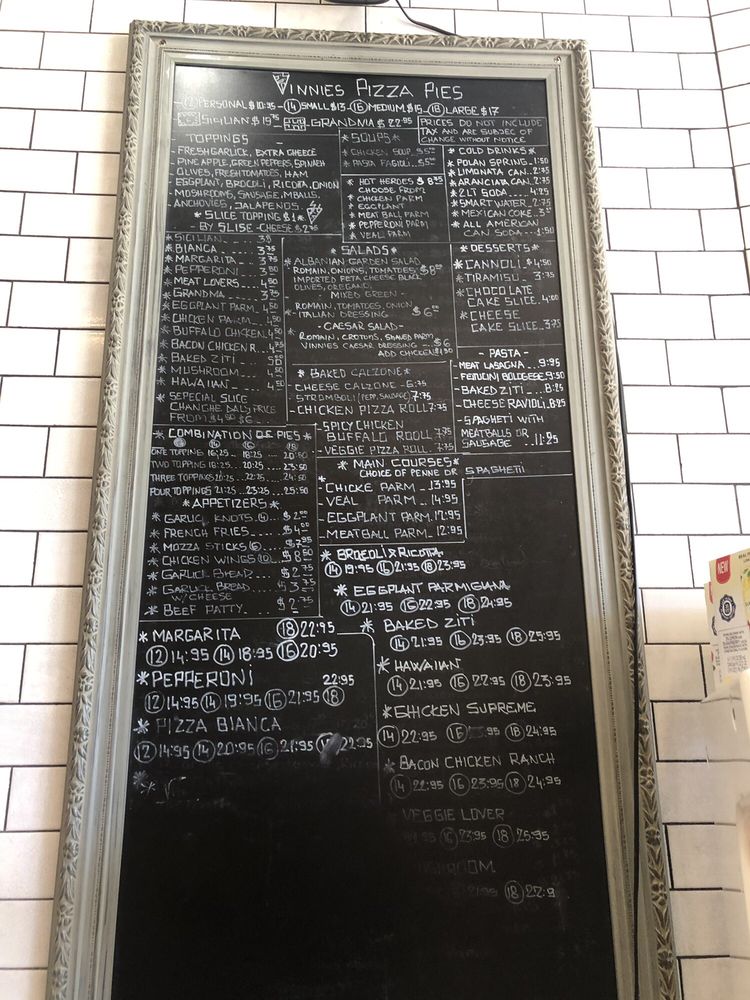 VINNIES PIZZA PIES
12 PERSONAL $10.95 - 14 SMALL $13 - 16 MEDIUM $15 - 18 LARGE $17
SICILIAN $ 19.75 GRANDMA $ 22.95
PRICES DO NOT INCLUDE
TAX AND ARE SUBJEC OF
CHANGE WITHOUT NOTICE
TOPPINGS
- FRESH GARLICK, EXTRA CHEECE
- PINE APPLE, GREEK PEPPERS, SPINAEH
- OLIVES, FRESH TOMATOES, HAM
- EGGPLANT, BROCOLI, RICOTTA, ONION
- MOSHROOMS, SAUSAGE, MEATBALLS,
- ANCHOVIES, JALAPENOS.
* SLICE TOPPING $1 *
- BY SLISE - CHEESE $2.75
* SICILIAN
* BIANCA 3.75
* MARGARITA 3.75
* PEPPERONI
* MEAT LOVERS 4.50
* GRANDMA 3.75
* EGGPLANT PARM. 4.50
* CHICKEN PARM 4.50
* BUFFALO CHICKEN 4.50
* BACON CHICKEN R...
* BAKED ZITI
* MUSHROOM
* HAWAIIAN 4.50
* SEPECIAL SLICE
CHANGHE DALY PRICE
FROM
* SOUPS *
* CHICKEN SOUP
* PASTA FAGIOLI
* HOT HEROES $ 8.95
CHOOSE FROM
* CHICKEN PARM
* EGGPLANT
* MEAT BALL PARM
* PEPPERONI PARM
* VEAL PARM
* COLD DRINKS *
* POLAN SPRING 1.50
* LIMONATA CAN 2.75
* ARANCIATA CAN 2.75
* 2 LT SODA 4.25
* SMART WATER 2.75
* MEXICAN COKE
* ALL AMERICAN
CAN SODA 1.50
* SALADS *
* ALBANIAN GARDEN SALAD
ROMAIN, ONIONS, TOMATOES
IMPORTED FETA CHEESE BLACK
OLIVES, OREGANO
MIXED GREEN -
ROMAIN, TOMATOES, ONION
- ITALIAN DRESSING $6
- CAESAR SALAD -
* ROMAIN, CROTONS, SHAVED PARM
VINNIES CAESAR DRESSING - $6
ADD CHICKEN $1.50
* DESSERTS *
* CANNOLI $4.50
* TIRAMISU 3.75
* CHOCOLATE
CAKE SLICE 4.00
* CHEESE
CAKE SLICE 3.75
* BAKED CALZONE -
- CHEESE CALZONE - 6.75
STROMBOLI (PEPP, SAUSAGE) 7.75
- CHICKEN PIZZA ROLL 7.75
- SPICY CHICKEN
BUFFALO ROOLL 7.75
- VEGGIE PIZZA ROLL 7.75
- PASTA -
- MEAT LASAGNA 9.95
- FETUCINI BOLOGESE 9.50
- BAKED ZITI 8.25
- CHEESE RAVIOLI 8.25
- SPAGHETI WITH
MEATBALLS OR
SAUSAGE - 11.25
* COMBINATION OF PIES *
ONE TOPPING 16.25 18.25 20.50
TWO TOPPING 18.25 20.25 23.50
THREE TOPPING 20.25 22.25 24.50
FOUR TOPPINGS 21.25 23.25 25.50
* APPETIZERS *
* GARLIC KNOTS
* FRENCH FRIES
* MOZZA STICKS
* CHICKEN WINGS
* GARLICK BREAD
* GARLICK BREAD
W/ CHEESE
* BEEF PATTY
* MAIN COURSES *
CHOICE OF PENNE OR SPAGHETI
- CHICKE PARM - 13.95
- VEAL PARM - 14.95
- EGGPLANT PARM. 12.95
- MEATBALL PARM - 12.95
* BROCOLI & RICOTTA
14 19.95 16 21.95 18 23.95
* EGGPLANT PARMIGIANA
14 21.95 16 22.95 18 24.95
* BAKED ZITI
14 21.95 16 23.95 18 25.95
* HAWAIIAN
14 21.95 16 22.95 18 23.95
* CHICKEN SUPREME
14 22.95 16 18 24.95
* BACON CHICKEN RANCH
14 22.95 16 23.95 18 24.95
VEGGIE LOVER
16 23.95 18 25.95
18
* MARGARITA 18 22.95
12 14.95 14 18.95 16 20.95
* PEPPERONI 22.95
12 14.95 14 19.95 16 21.95 18
* PIZZA BIANCA
12 14.95 14 20.95 16 21.95 22.95
NEW